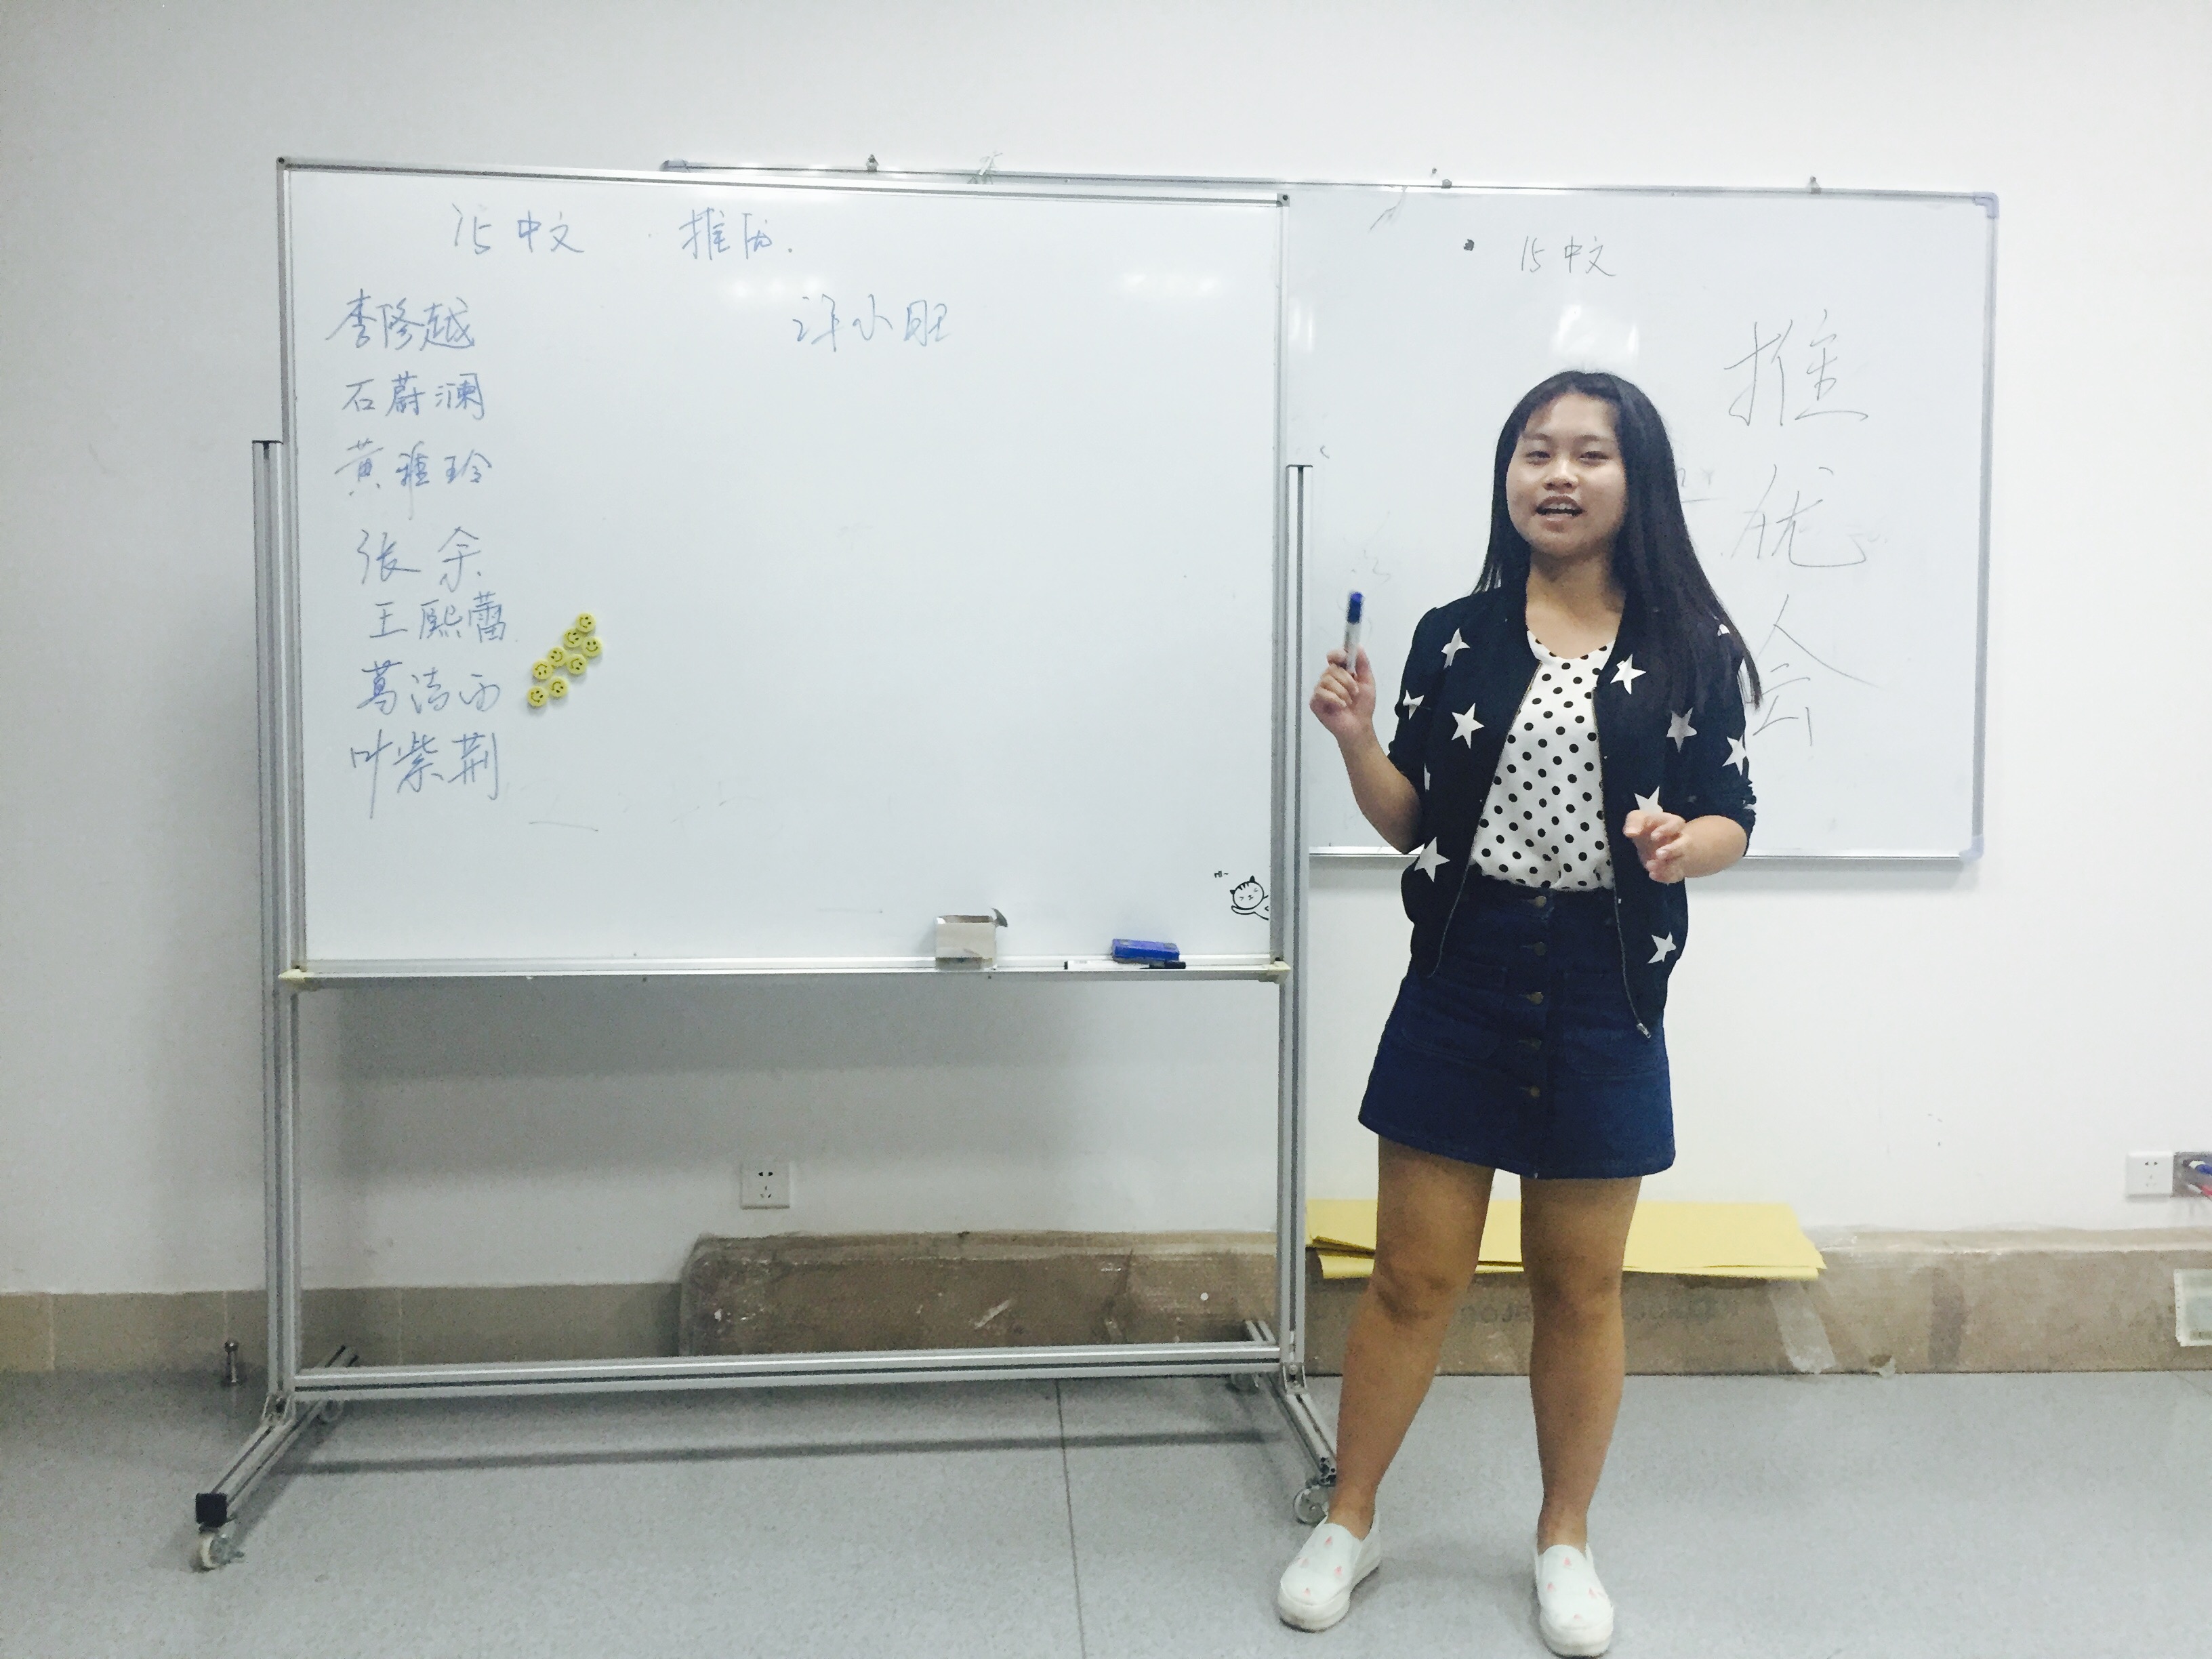 15中文 推优.
李隆越
许小旺
石蔚澜
黄雅玲
张余
王熙蕾
葛洁西
叶紫荆
15中文
推
优
会